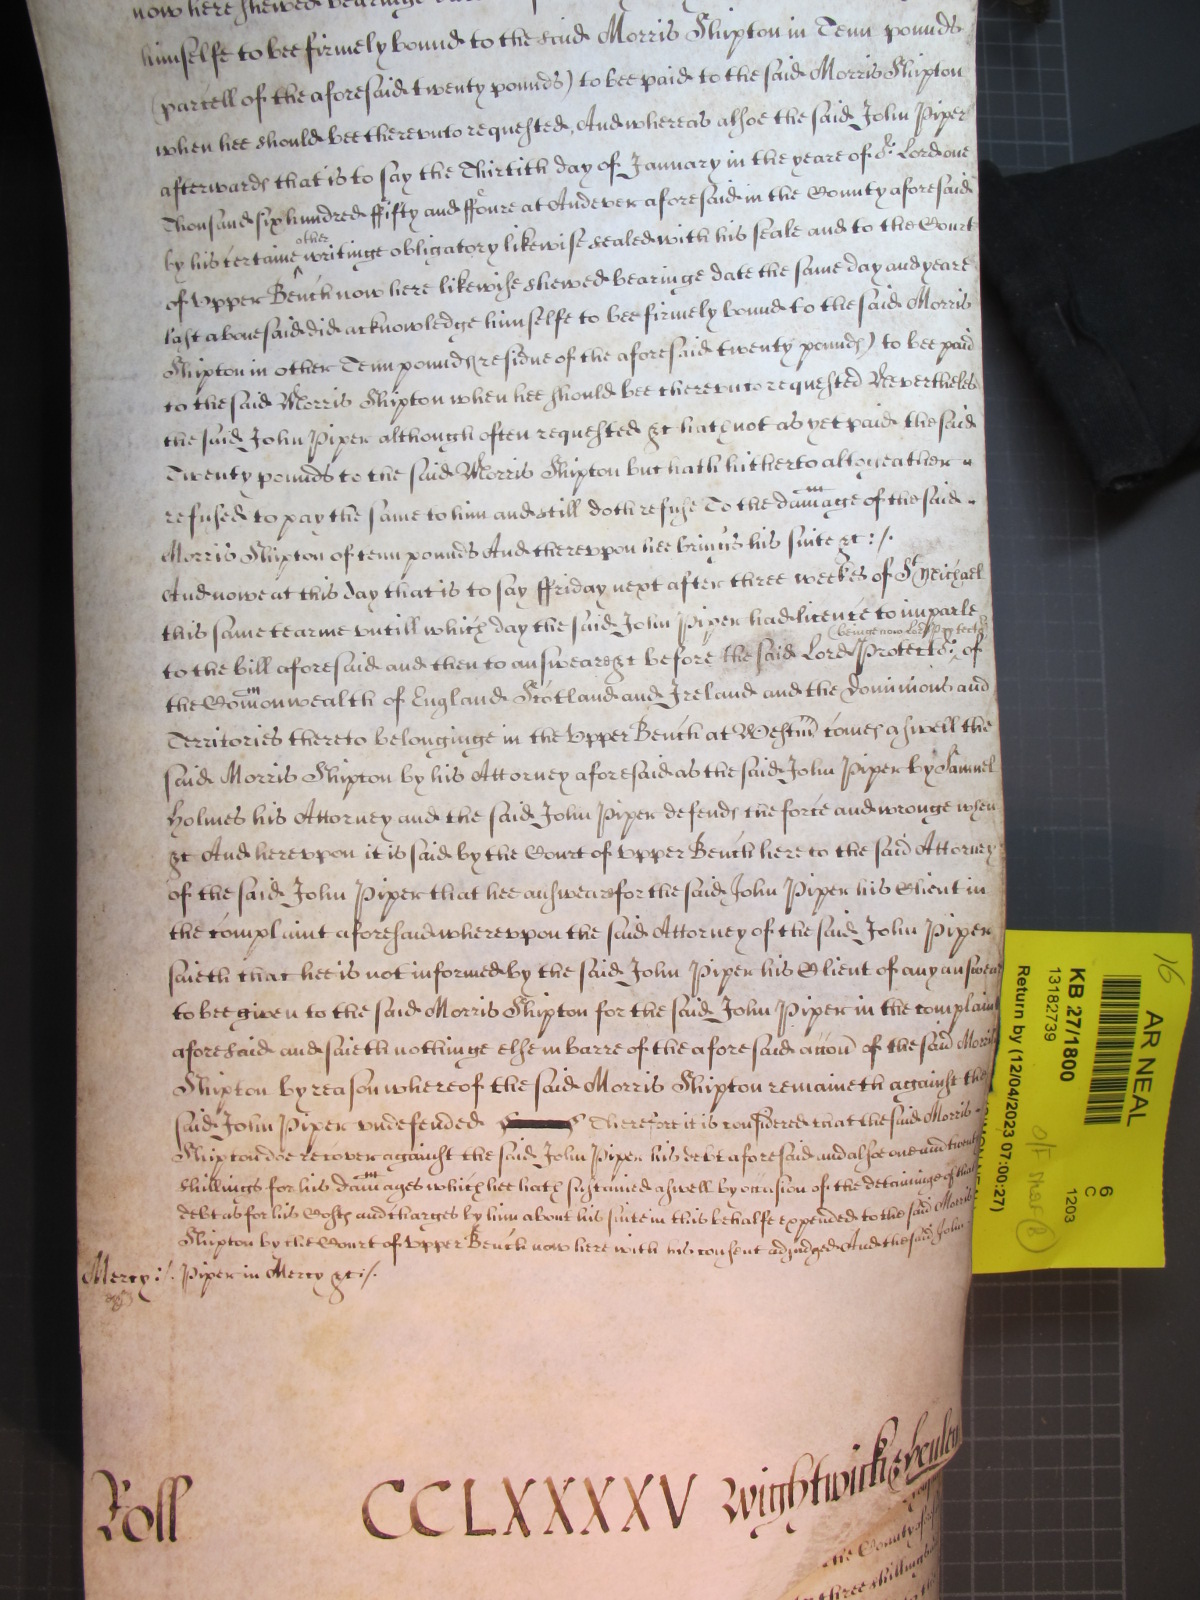 now here shewed bearinge
himselfe to bee firmely bound to the said Morris Shipton in Tenn pounds
(parcell of the aforesaid twenty pounds) to bee paid to the said Morris Shipton
when hee should bee therevnto requested, And whereas alsoe the said John Piper
afterwards that is to say the Thirtith day of January in the yeare of or Lord one
Thousand six hundred ffifty and ffoure at Andever aforesaid in the County aforesaid
by his certaine other writinge obligatory likewise sealed with his seale and to the Court
of Vpper Bench now here likewise shewed bearinge date the same day and yeare
last abouesaid did acknowledge himselfe to bee firmely bound to the said Morris
Shipton in other Tenn pounds (residue of the aforesaid twenty pounds) to bee paid
to the said Morris Shipton when hee should bee therevnto requested Neverthelesse
the said John Piper although often requested &c hath not as yet paid the said
Twenty pounds to the said Morris Shipton but hath hitherto altogeather
refused to pay the same to him and still doth refuse To the damage of the said
Morris Shipton of tenn pounds And therevpon hee bringes his suite &c :/.
And nowe at this day that is to say ffriday next after three weekes of St Michael
this same tearme vntill which day the said John Piper had licence to imparle
to the bill aforesaid and then to answeare &c before the said Lord (beinge now Lord Protector) Protector of
the Comonwealth of England Scotland and Ireland and the Dominions and
Territories thereto belonginge in the Vpper Bench at Westm comes aswell the
said Morris Shipton by his Attorney aforesaid as the said John Piper by Samuel
Holmes his Attorney and the said John Piper defends the force and wronge when
&c And herevpon it is said by the Court of Vpper Bench here to the said Attorney
of the said John Piper that hee answeare for the said John Piper his Client in
the complaint aforesaid wherevpon the said Attorney of the said John Piper
saieth that hee is not informed by the said John Piper his Client of any answeare
to bee given to the said Morris Shipton for the said John Piper in the complaint
aforesaid and saieth nothinge else in barre of the aforesaid accon of the said Morris
Shipton by reason whereof the said Morris Shipton remaineth against the
said John Piper vndefended Therefore it is considered that the said Morris
Shipton doe recover against the said John Piper his debt aforesaid and alsoe one and twenty
shillings for his damages which hee hath sustained aswell by occasion of the detaininge of that
debt as for his Costs and charges by him about his suite in this behalfe expended to the said Morris
Shipton by the Court of Vpper Bench now here with his consent adjudged And the said John
Mercy :/. Piper in Mercy &c :/.
Roll CCLXXXXV Wightwick
the County
three shillings
16
AR NEAL
KB 27/1800
13182739
Return by (12/04/2023 07:00:27)
6
C
1203